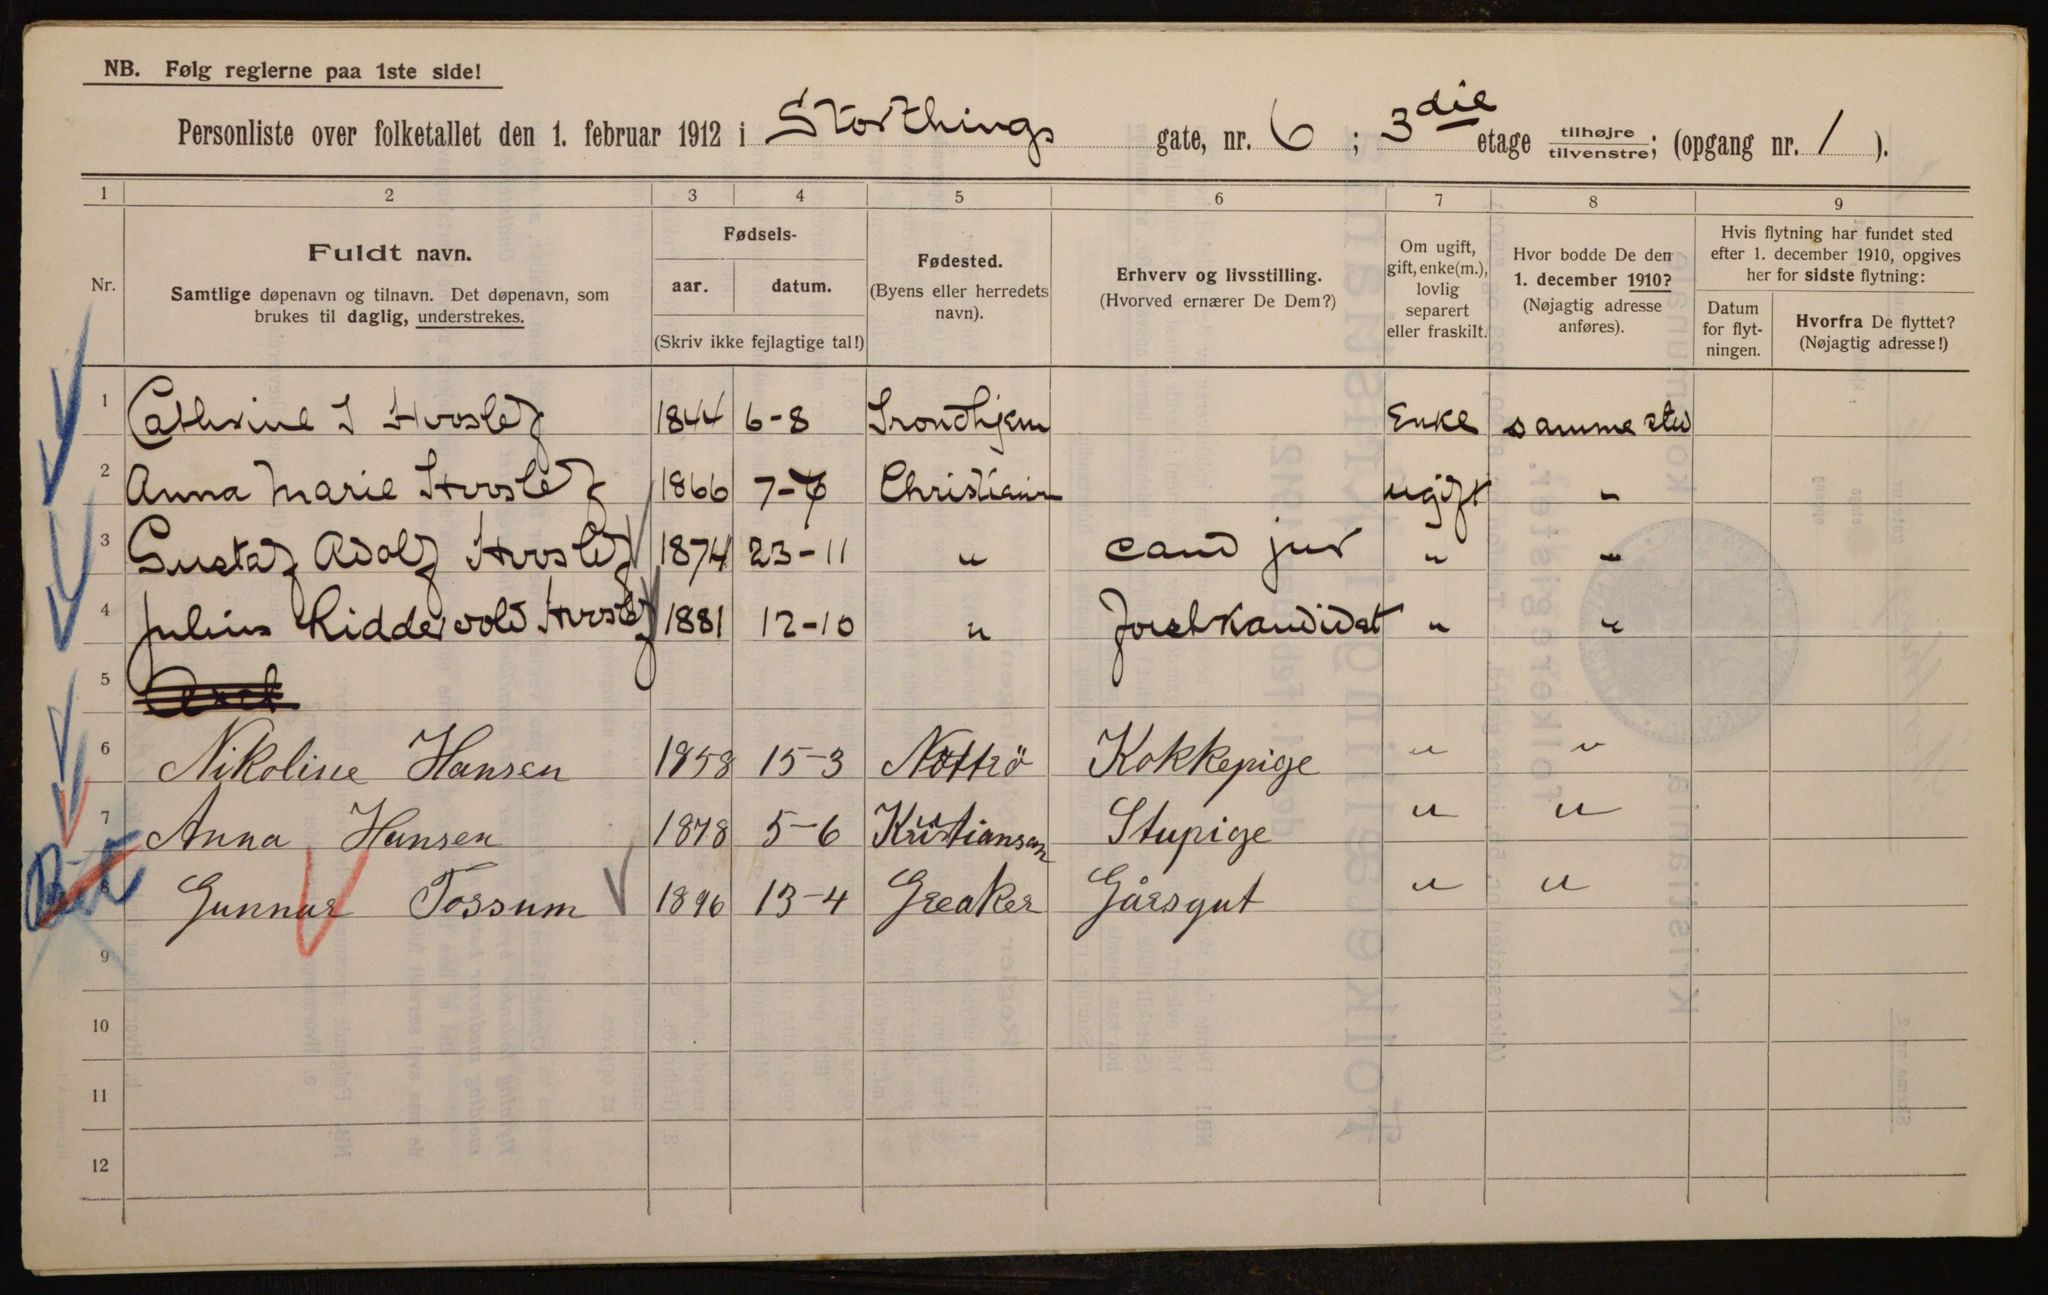 NB. Følg reglerne paa 1ste side!
Personliste over folketallet den 1. februar 1912 i Storthings gate, nr. 6 ; 3die etage tilhøjre tilvenstre; (opgang nr. 1 ).
1 2 3 4 5 6 7 8 9
Nr.
Fuldt navn.
Samtlige døpenavn og tilnavn. Det døpenavn, som
brukes til daglig, understrekes.
Fødsels-
aar. datum.
(Skriv ikke fejlagtige tal!)
Fødested.
(Byens eller herredets
navn).
Erhverv og livsstilling.
(Hvorved ernærer De Dem?)
Om ugift,
gift, enke(m.),
lovlig
separert
eller fraskilt.
Hvor bodde De den
1. december 1910?
(Nøjagtig adresse
anføres).
Hvis flytning har fundet sted
efter 1. december 1910, opgives
her for sidste flytning:
Datum
for flyt-
ningen.
Hvorfra De flyttet?
(Nøjagtig adresse!)
1 Cathrine I Hvoslef 1844 6-8 Trondhjem Enke samme sted
2 Anna Marie Hvoslef 1866 Christiania ugift "
3 Gustaf Adolf Hvoslef 1874 23-11 " cand jur " "
4 Julius Riddervold Hvoslef 1881 12-10 " Forstkandidat " "
5
6 Nikoline Hansen 1858 15-3 Nöttrö Kokkepige " "
7 Anna Hansen 1878 5-6 Kristiansan Stupige " "
8 Gunnar Tossum 1896 13-4 Greaker Gårsgut " "
9
10
11
12